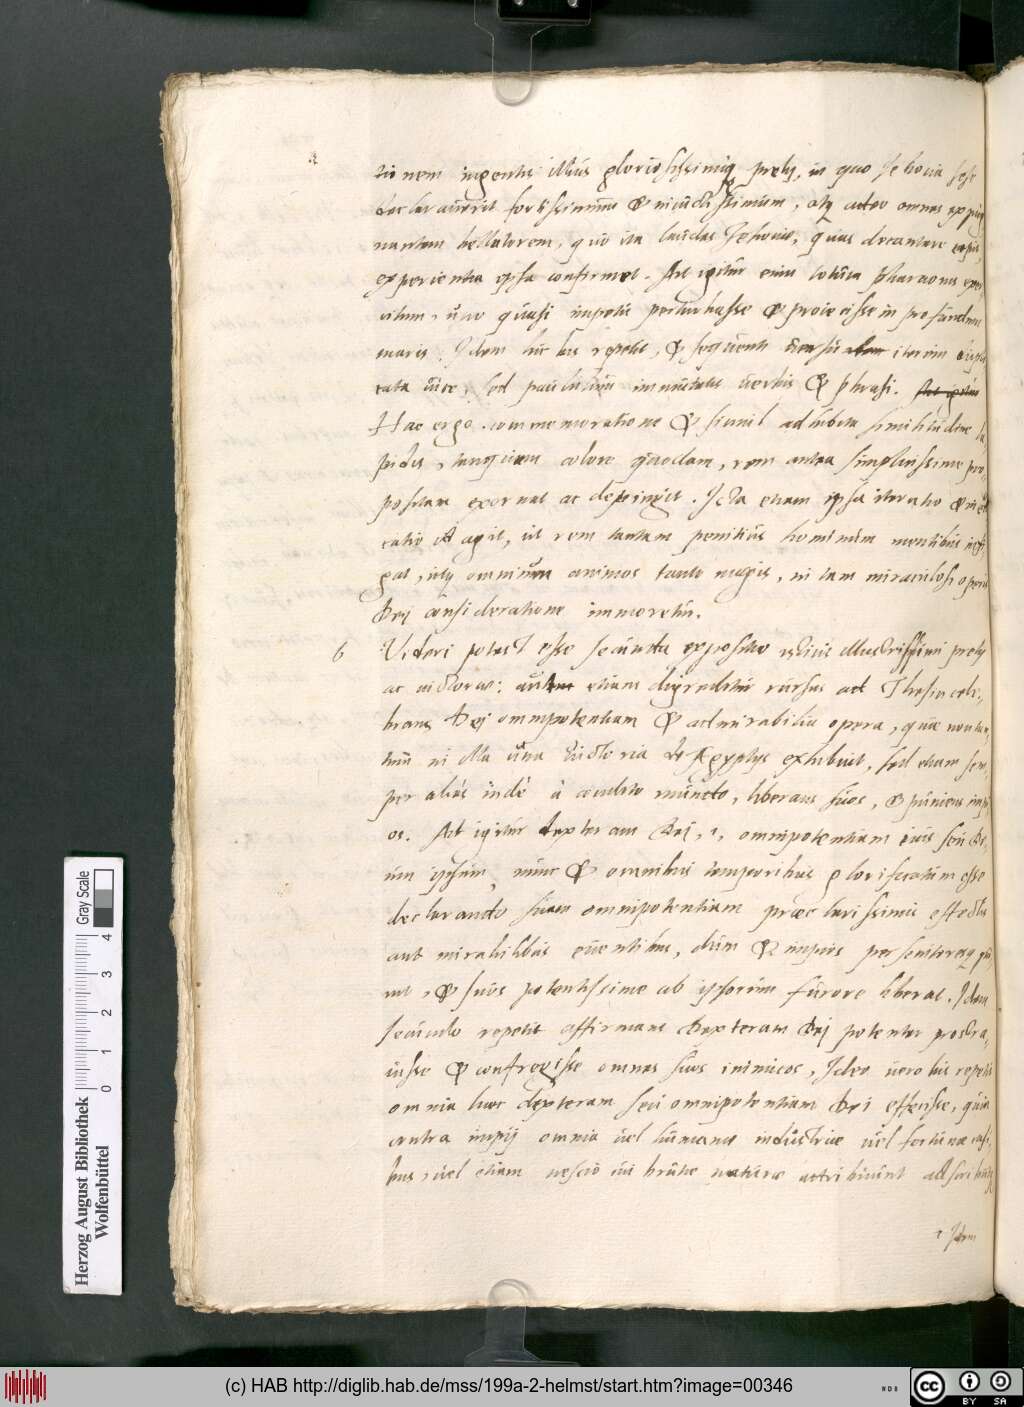 tionem ingentis illius gloriosissimiq; prelij, in quo Jehova sese
declaraverit fortissimum & invictissimum, atq; adeo omnes expug
nantem bellatorem, quo ita laudes Jehovae, quas decantare cepit,
experientia ipsa confirmet. Ait igitur eum totum Pharaonis exer-
citum, uno quasi impetu perturbasse & proiecisse in profundum
maris. Idem hic bis repetit, & sequenti versu iterum
cata vice, sed paululum immutatis verbis & phrasi. Ait igitur
Hac ergo commemoratione & simul adhibita similitudine la
pidis, tanquam colore quodam, rem antea simplicissime pro-
positam exornat ac depingit. Ista etiam ipsa iteratio &
catio id agit, ut rem tantam penitius hominum mentibus infi
gat, utq; omnium animos tanto magis, in tam miraculosi operis
Dej consideratione immoretur.
6 Videri potest esse secunda expositio istius illustrissimi prelij
ac victoriae: autem etiam digreditur rursus ad Thesin cele-
brans Dej omnipotentiam & admirabilia opera, quae non tan-
tum in illa una victoria de Aegyptijs exhibuit, sed etiam sem-
per alias inde à condito mundo, liberans suos, & puniens impi
os. Ait igitur dexteram Dej, .i. omnipotentiam eius seu De-
um ipsum, nunc & omnibus temporibus glorificatam esse
declarando suam omnipotentiam praeclarissimis effectis
aut mirabilibus eventibus, dum & impios persecutoresq; pu-
nit, & suos potentissime ab ipsorum furore liberat. Idem
secundo repetit affirmans Dexteram Dej potenter prostra-
visse & confregisse omnes suos inimicos, Ideo vero bis repetit
omnia haec dexteram seu omnipotentiam Dei effecisse, quia
contra impij omnia vel humanae industriae vel fortunae casi-
bus, vel etiam nescio cui brutae naturae attribuunt
Idem
Herzog August Bibliothek
Wolfenbüttel
0 1 2 3 4
Gray Scale
(c) HAB http://diglib.hab.de/mss/199a-2-helmst/start.htm?image=00346
NDB
cc
BY SA